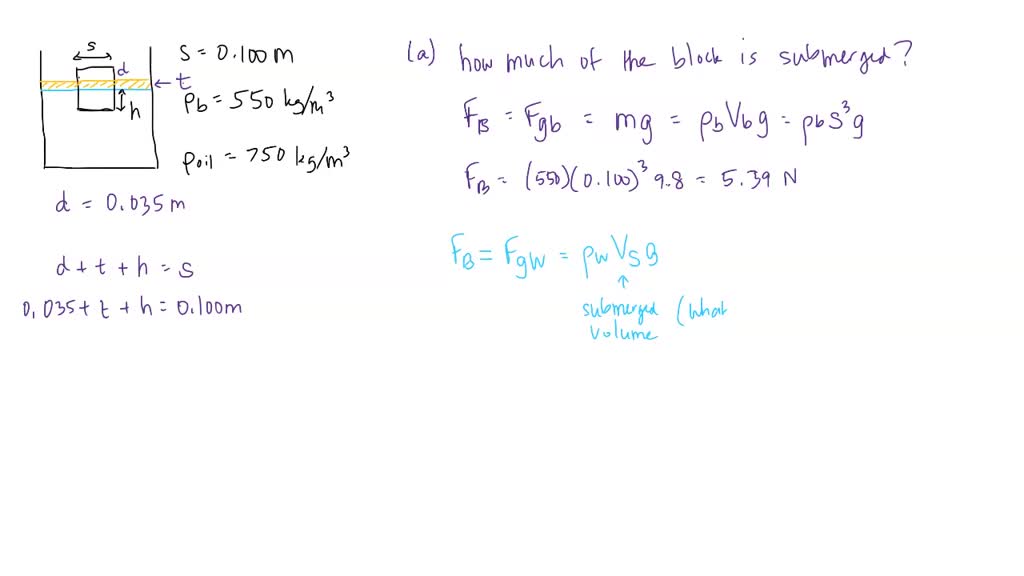 s
d
← t
h
S = 0.100 m
ρb = 550 kg/m³
ρoil = 750 kg/m³
d = 0.035 m
d + t + h = s
0.035 + t + h = 0.100m
(a) how much of the block is submerged?
FB = Fgb = mg = ρbVbg = ρbs³g
FB = (550)(0.100)³ 9.8 = 5.39 N
FB = Fgw = ρwVsg
↑
submerged (what
volume